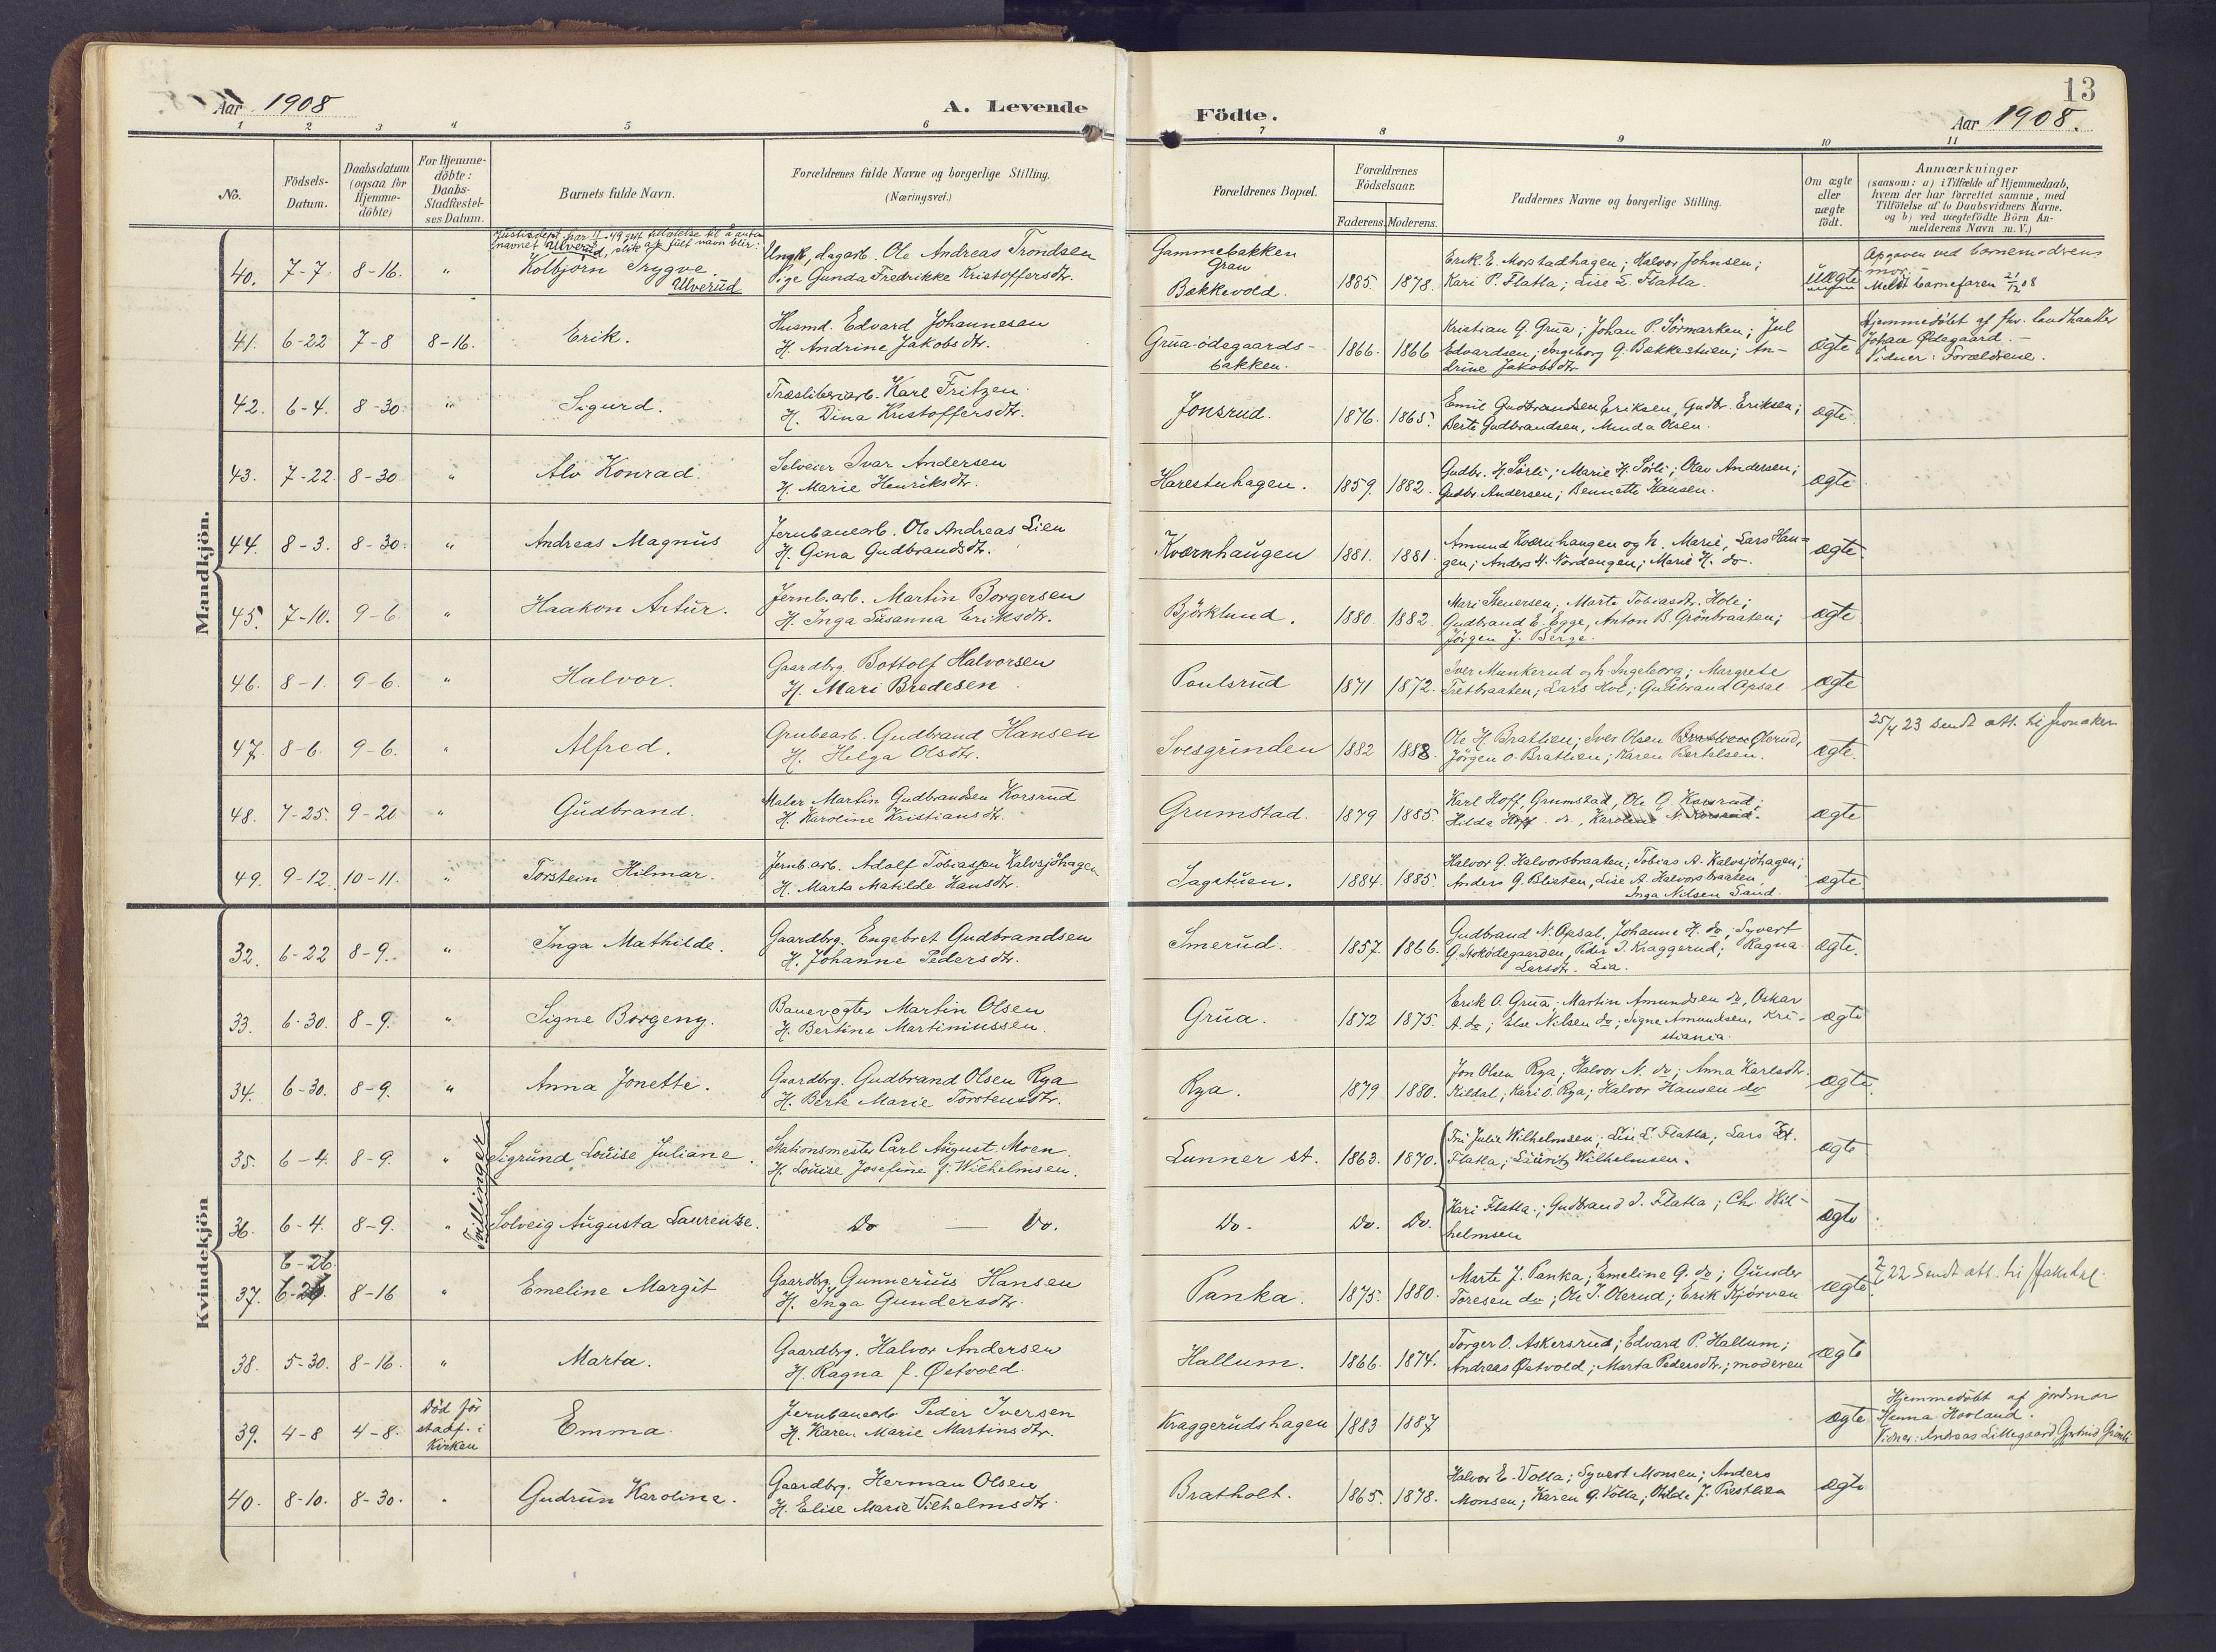 Aar 1908
A. Levende
Födte.
13
Aar 1908.
1 2 3 4 5 6 7 8 9 10 11
No.
Födsels-Datum.
Daabsdatum (ogsaa for Hjemme-döbte)
For Hjemme-döbte: Daabs-Stadfæstel-ses Datum.
Barnets fulde Navn.
Forældrenes fulde Navne og borgerlige Stilling. (Næringsvei.)
Forældrenes Bopæl.
Forældrenes Födselsaar.
Faderens. Moderens.
Faddernes Navne og borgerlige Stilling.
Om ægte eller uægte födt.
Anmærkninger
(saasom: a) i Tilfælde af Hjemmedaab,
hvem der har forrettet samme, med
Tilföielse af to Daabsvidners Navne.
og b) ved uegtefödte Börn An-
melderens Navn m. V.)
Mandkjön.
navnet Ulverud, slik at fullt navn blir:
40. 7-7 8-16. " Kolbjörn Trygve Ulverud
Ungk, dagarb. Ole Andreas Trondsen
Pige Gunda Fredrikke Kristoffersdtr.
Gammebakken
Gran
Bækkevold.
1885. 1878.
Erik E. Morstadhagen; Halvor Johnsen;
Kari P. Flatla; Lise L. Flatla.
Uægte
Opgaven ved barnemodrens
mor. -
Meldt barnefaren 21/12 08
41. 6-22 7-8 8-16. Erik.
Husmd. Edvard Johannesen
H. Andrine Jakobsdtr.
Grua-ödegaards-
bakken.
1866. 1866
Kristian G. Grua; Johan P. Sörmarken; Jul
Edvardsen; Ingeborg G. Bækkestuen; An-
drine Jakobsdtr
ægte
Hjemmedöbt af fhv. landhandler
Johan Ødegaard. -
Vidner: Forældrene.
42. 6-4. 8-30 " Sigurd.
Træsliberiarb. Karl Fritzen
H. Dina Kristoffersdtr.
Jonsrud.
1876. 1865.
Emil Gudbrandsen Eriksen, Gudbr. Eriksen;
Berte Gudbrandsen, Minda Olsen.
ægte
43. 7-22. 8-30 " Alv Konrad.
Selveier Ivar Andersen
H. Marie Henriksdtr.
Harestuhagen.
1859. 1882.
Gudbr. H. Sörli; Marie H. Sörli; Olav Andersen;
Gudbr. Andersen; Bennette Hansen.
ægte
44. 8-3. 8-30. " Andreas Magnus
Jernbanearb. Ole Andreas Lien
H. Gina Gudbrandsdtr.
Kværnhaugen
1881. 1881.
Amund Kværnhaugen og h. Marie, Lars Hau-
gen; Anders H. Nordengen; Marie H. do.
ægte.
45. 7-10. 9-6 " Haakon Artur.
Jernb.arb. Martin Borgersen
H. Inga Susanna Eriksdtr.
Björklund.
1880. 1882.
Mari Stenersen, Marte Tobiasdtr. Hole;
Gudbrand E. Egge, Anton B. Grönbraaten;
Jörgen J. Berge.
ægte
46. 8-1. 9-6. " Halvor.
Gaardbrg. Bottolf Halvorsen
H. Mari Bredesen
Paulsrud
1871 1872.
Iver Munkerud og h. Ingeborg; Margrete
Tretbraaten; Lars Hol; Gudbrand Opsal
ægte
47. 8-6. 9-6. " Alfred.
Grubearb. Gudbrand Hansen
H. Helga Olsdtr.
Svesgrinden
1882 1888.
Ole H. Bratlien; Iver Olsen Olerud,
Jörgen O. Bratlien; Karen Bertelsen.
ægte.
25/4 23 sendt att. til Jevnaker
48. 7-25. 9-20 " Gudbrand.
Maler Martin Gudbrandsen Korsrud
H. Karoline Kristiansdtr.
Grumstad.
1879 1885.
Karl Hoff, Grumstad, Ole G. Korsrud;
Hilda Hoff do., Karoline N. Korsrud.
ægte
49. 9-12. 10-11. " Torstein Hilmar.
Jernb.arb. Adolf Tobiassen Kalvsjöhagen
H. Marta Matilde Hansdtr.
Sagstuen.
1884. 1885.
Halvor G. Halvorsbraaten; Tobias A. Kalvsjöhagen;
Anders G. Blieken, Lise A. Halvorsbraaten
Inga Nilsen Sand.
ægte
Kvindekjön
32. 6-22 8-9. " Inga Mathilde.
Gaardbrg. Engebret Gudbrandsen
H. Johanne Pedersdtr.
Smerud.
1857. 1866.
Gudbrand N. Opsal, Johanne H. do; Syvert
G. Stoködegaarden, Peder I. Kraggerud; Ragna
Larsdtr. Lia.
ægte.
33. 6-30. 8-9. " Signe Borgeny.
Banevogter Martin Olsen
H. Bertine Martiniussen.
Grua.
1872 1875.
Erik O. Grua; Martin Amundsen do, Oskar
A. do; Else Nilsen do; Signe Amundsen, Kri-
stiania.
ægte
34. 6-30. 8-9. " Anna Jonette.
Gaardbrg. Gudbrand Olsen Rya
H. Berte Marie Torstensdtr.
Rya.
1879 1880.
Jon Olsen Rya; Halvor N. do; Anna Karlsdtr.
Kildal; Kari O. Rya; Halvor Hansen do
ægte.
Tvillinger
35. 6-4. 8-9. " Sigrund Louise Juliane.
Stationsmester Carl August Moen
H. Louise Josefine f. Wilhelmsen.
Lunner st.
1863. 1870.
Fru Julie Wilhelmsen; Lise L. Flatla; Lars
Flatla; Lauritz Wilhelmsen.
ægte
36. 6-4. 8-9. " Solveig Augusta Laurentze.
Do — Do.
Do. Do. Do.
Kari Flatla; Gudbrand I. Flatla; Chr. Wil-
helmsen
ægte
6-26.
37. 8-16 " Emeline Margit
Gaardbrg. Gunnerius Hansen
H. Inga Gundersdtr.
Panka.
1875. 1880.
Marte J. Panka; Emeline G. do; Gunder
Toresen do; Ole T. Olerud; Erik Kjörven
ægte.
22 Sendt att. til
38. 5-30. 8-16. " Marta.
Gaardbrg. Halvor Andersen
H. Ragna f. Østvold.
Hallum.
1866. 1874.
Torger O. Askersrud; Edvard P. Hallum;
Andreas Østvold; Marta Pedersdtr.; moderen
ægte
39. 4-8 4-8. Död för
stadf. i
Kirken
Emma.
Jernbanearb. Peder Iversen
H. Karen Marie Martinsdtr.
Kraggerudshagen
1883 1887
ægte
Hjemmedöbt af jordmor
Henna Hovland.
Vidner: Andreas Lillegaard, Gjertrud
40. 8-10. 8-30. " Gudrun Karoline.
Gaardbrg. Herman Olsen
H. Elise Marie Vilhelmsdtr.
Bratholt.
1865. 1878.
Halvor E. Volla; Syvert Monsen; Anders
Monsen; Karen G. Volla; Hilda J. Prestlien
ægte